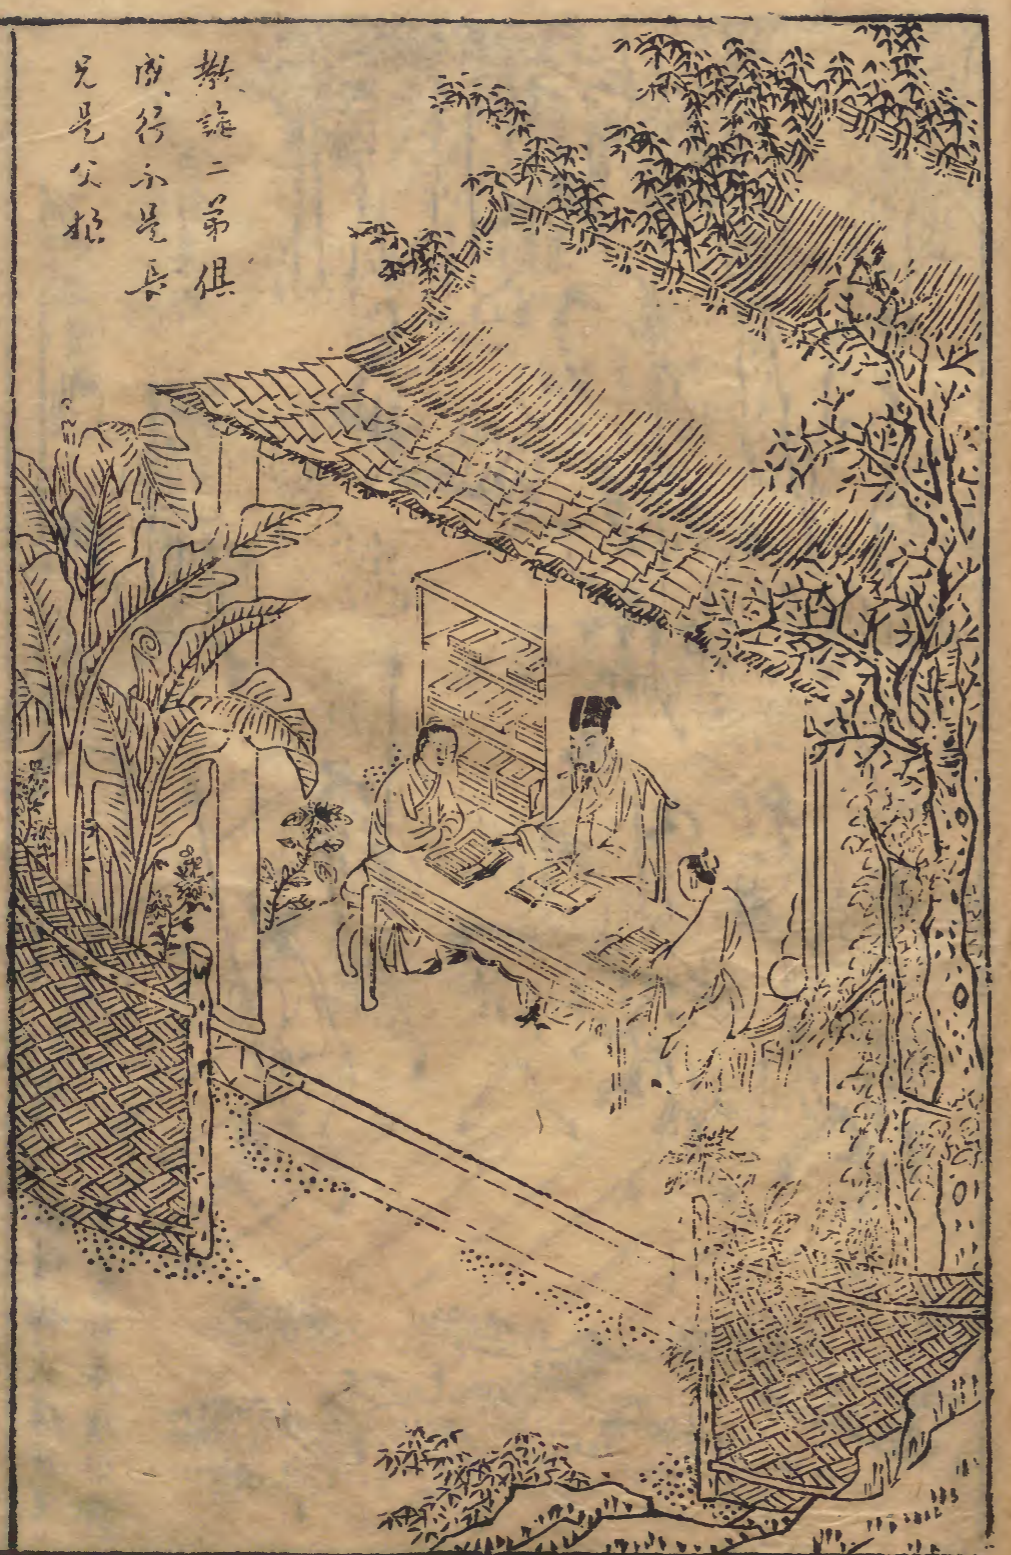 教誨二弟俱
成行不是長
兄是父娘